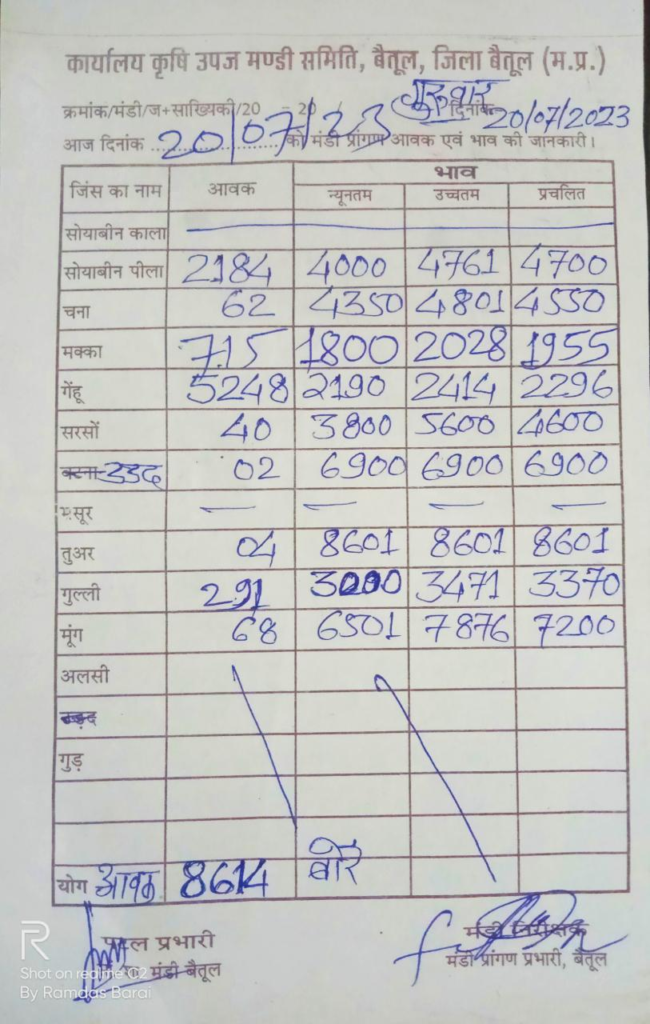 कार्यालय कृषि उपज मण्डी समिति, बैतूल, जिला बैतूल (म.प्र.)
गुरूवार
क्रमांक/मंडी/ज+साख्यिकी/20 - 20 / दिनांक 20/07/2023
आज दिनांक 20/07/23 को मंडी प्रांगण आवक एवं भाव की जानकारी।
जिंस का नाम आवक भाव
न्यूनतम उच्चतम प्रचलित
सोयाबीन काला —
सोयाबीन पीला 2184 4000 4761 4700
चना 62 4350 4801 4550
मक्का 715 1800 2028 1955
गेंहू 5248 2190 2414 2296
सरसों 40 3800 5600 4600
उडद 02 6900 6900 6900
मसूर — — — —
तुअर 04 8601 8601 8601
गुल्ली 291 3000 3471 3370
मूंग 68 6501 7876 7200
अलसी
गुड़
योग आवक 8614 बोरे
प्रभारी मंडी निरीक्षक
मंडी बैतूल मंडी प्रांगण प्रभारी, बैतूल
R
Shot on realme C2
By Ramdas Barai